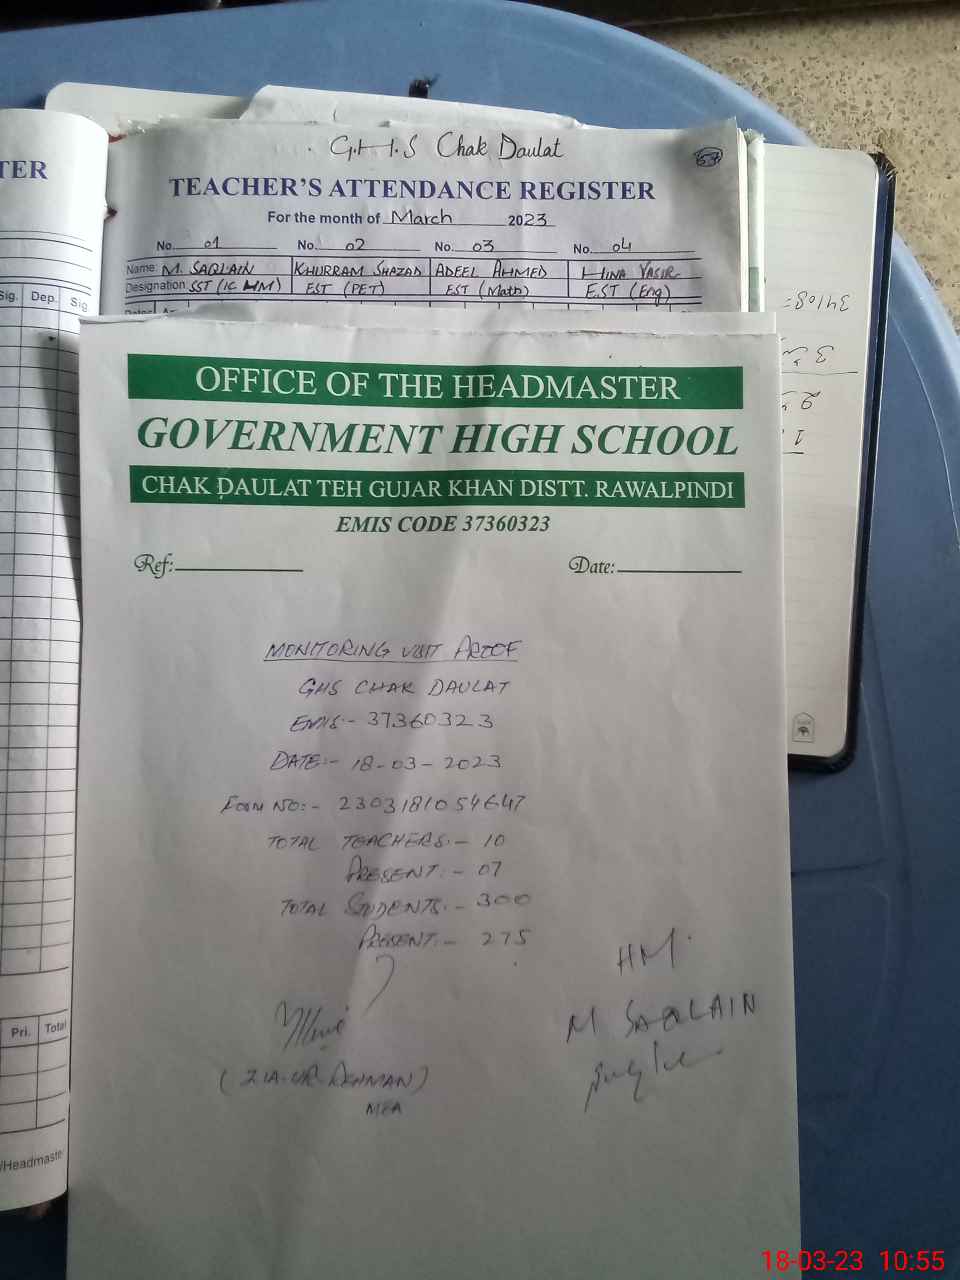 G.H.S Chak Daulat
57
TER
TEACHER'S ATTENDANCE REGISTER
For the month of March 2023
No. 01 No. 02 No. 03 No. 04
Name: M. SAQLAIN KHURRAM SHAZAD ADEEL AHMED HINA YASIR
Designation SST (IC HM) EST (PET) EST (Math) E.ST (Eng)
Sig. Dep. Sig
OFFICE OF THE HEADMASTER
GOVERNMENT HIGH SCHOOL
CHAK DAULAT TEH GUJAR KHAN DISTT. RAWALPINDI
EMIS CODE 37360323
Ref: Date:
MONITORING VISIT PROOF
GHS CHAK DAULAT
EMIS:- 37360323
DATE:- 18-03-2023
FORM NO:- 2303181054647
TOTAL TEACHERS:- 10
PRESENT:- 07
TOTAL STUDENTS:- 300
PRESENT:- 275
HM
M SAQLAIN
(ZIA-UR-REHMAN)
MEA
Pri. Total
/Headmaste
18-03-23 10:55